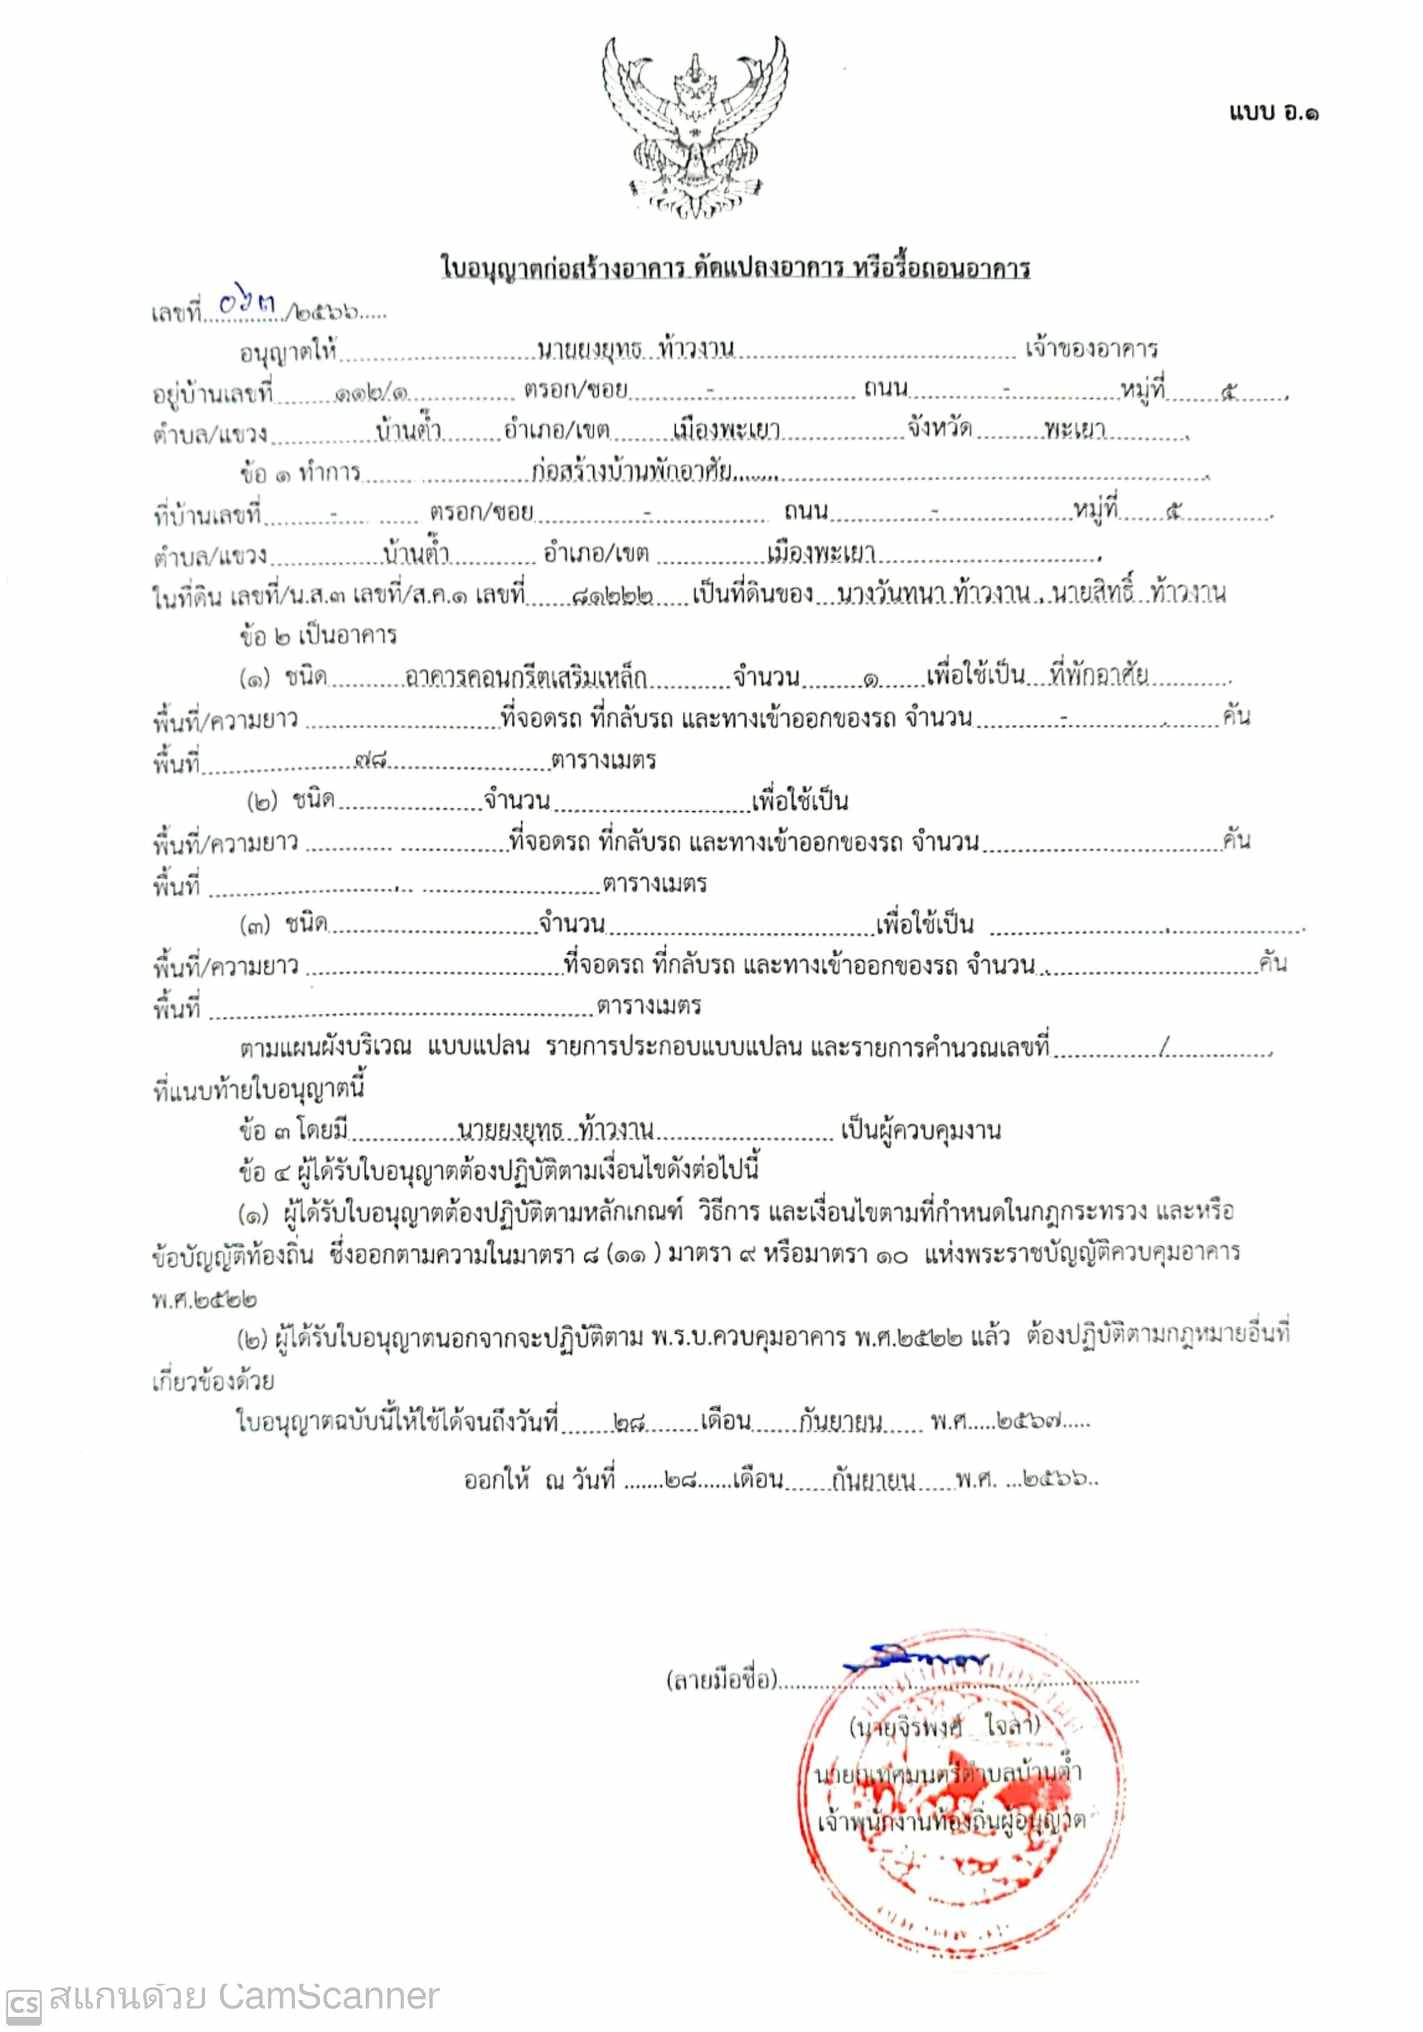 แบบ อ.๑
ใบอนุญาตก่อสร้างอาคาร ดัดแปลงอาคาร หรือรื้อถอนอาคาร
เลขที่ ๐๖๓ /๒๕๖๖.....
อนุญาตให้ นายยงยุทธ ท้าวงาน เจ้าของอาคาร
อยู่บ้านเลขที่ ๑๑๒/๑ ตรอก/ซอย - ถนน - หมู่ที่ ๕
ตำบล/แขวง บ้านต๊ำ อำเภอ/เขต เมืองพะเยา จังหวัด พะเยา
ข้อ ๑ ทำการ ก่อสร้างบ้านพักอาศัย
ที่บ้านเลขที่ - ตรอก/ซอย - ถนน - หมู่ที่ ๕
ตำบล/แขวง บ้านต๊ำ อำเภอ/เขต เมืองพะเยา
ในที่ดิน เลขที่/น.ส.๓ เลขที่/ส.ค.๑ เลขที่ ๘๑๒๒๒ เป็นที่ดินของ นางวันทนา ท้าวงาน , นายสิทธิ์ ท้าวงาน
ข้อ ๒ เป็นอาคาร
(๑) ชนิด อาคารคอนกรีตเสริมเหล็ก จำนวน ๑ เพื่อใช้เป็น ที่พักอาศัย
พื้นที่/ความยาว ที่จอดรถ ที่กลับรถ และทางเข้าออกของรถ จำนวน - คัน
พื้นที่ ๗๘ ตารางเมตร
(๒) ชนิด จำนวน เพื่อใช้เป็น
พื้นที่/ความยาว ที่จอดรถ ที่กลับรถ และทางเข้าออกของรถ จำนวน คัน
พื้นที่ ตารางเมตร
(๓) ชนิด จำนวน เพื่อใช้เป็น
พื้นที่/ความยาว ที่จอดรถ ที่กลับรถ และทางเข้าออกของรถ จำนวน คัน
พื้นที่ ตารางเมตร
ตามแผนผังบริเวณ แบบแปลน รายการประกอบแบบแปลน และรายการคำนวณเลขที่ /
ที่แนบท้ายใบอนุญาตนี้
ข้อ ๓ โดยมี นายยงยุทธ ท้าวงาน เป็นผู้ควบคุมงาน
ข้อ ๔ ผู้ได้รับใบอนุญาตต้องปฏิบัติตามเงื่อนไขดังต่อไปนี้
(๑) ผู้ได้รับใบอนุญาตต้องปฏิบัติตามหลักเกณฑ์ วิธีการ และเงื่อนไขตามที่กำหนดในกฎกระทรวง และหรือ
ข้อบัญญัติท้องถิ่น ซึ่งออกตามความในมาตรา ๘ (๑๑ ) มาตรา ๙ หรือมาตรา ๑๐ แห่งพระราชบัญญัติควบคุมอาคาร
พ.ศ.๒๕๒๒
(๒) ผู้ได้รับใบอนุญาตนอกจากจะปฏิบัติตาม พ.ร.บ.ควบคุมอาคาร พ.ศ.๒๕๒๒ แล้ว ต้องปฏิบัติตามกฎหมายอื่นที่
เกี่ยวข้องด้วย
ใบอนุญาตฉบับนี้ให้ใช้ได้จนถึงวันที่ ๒๘ เดือน กันยายน พ.ศ. ๒๕๖๗
ออกให้ ณ วันที่ ๒๘ เดือน กันยายน พ.ศ. ๒๕๖๖
(ลายมือชื่อ)
(นายจิรพงศ์ ใจลา)
นายกเทศมนตรีตำบลบ้านต๊ำ
เจ้าพนักงานท้องถิ่นผู้อนุญาต
CS สแกนด้วย CamScanner